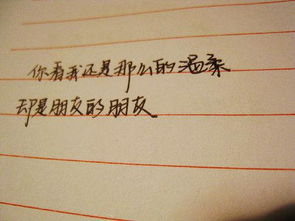 你看我还是那么的温柔
却是朋友的朋友